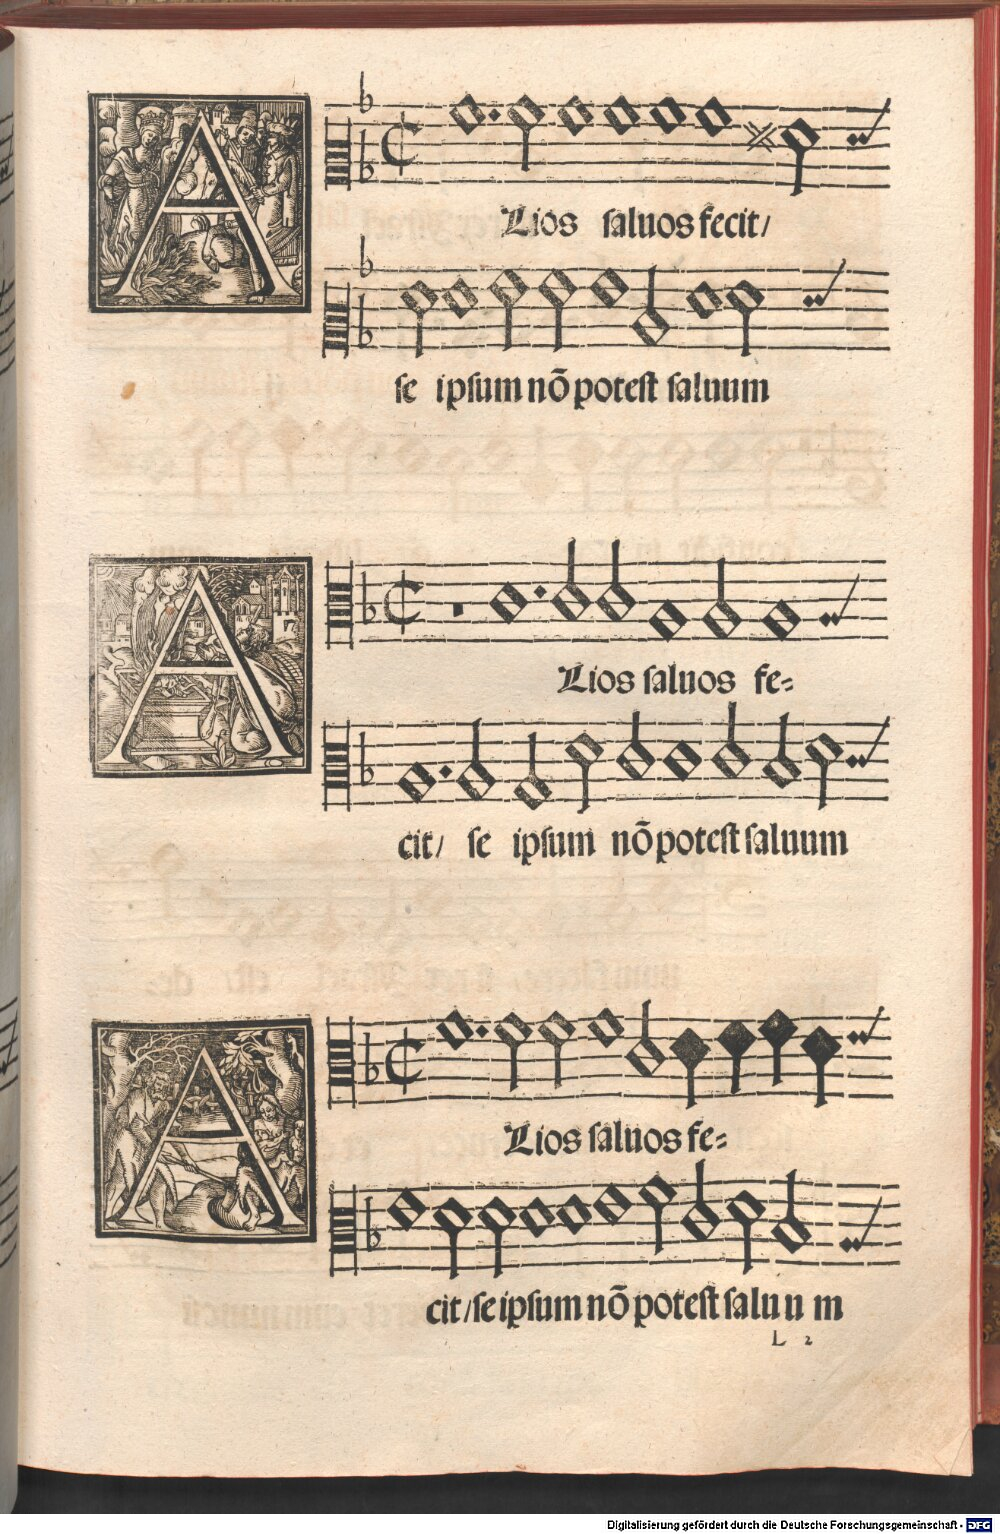 ALios saluos fecit/
se ipsum nō potest saluum
ALios saluos fe-
cit/ se ipsum nō potest saluum
ALios saluos fe-
cit/se ipsum nō potest saluum
L 2
Digitalisierung gefördert durch die Deutsche Forschungsgemeinschaft - DFG